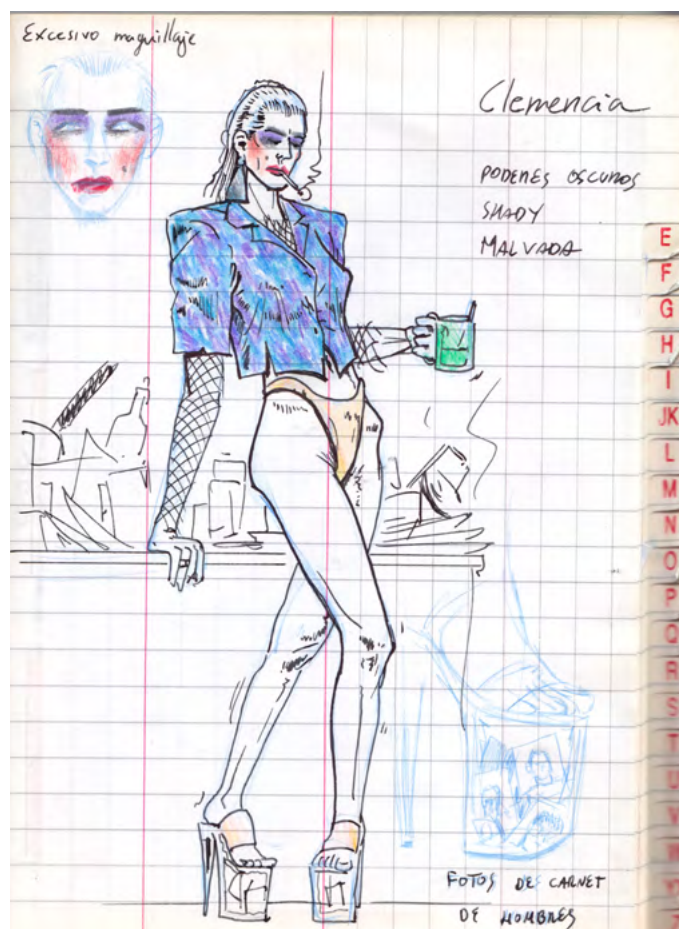 Excesivo maquillaje
Clemencia
PODERES OSCUROS
SHADY
MALVADA
E
F
G
H
I
JK
L
M
N
O
P
Q
R
S
T
U
V
W
FOTOS DE CARNET
DE HOMBRES